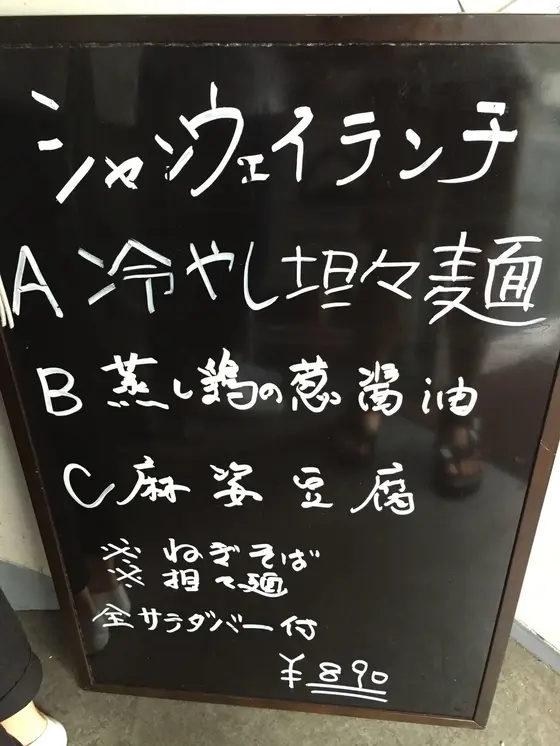 シャンウェイランチ
A 冷やし坦々麺
B 蒸し鶏の葱醤油
C 麻婆豆腐
※ ねぎそば
※ 担々麺
全サラダバー付
¥890